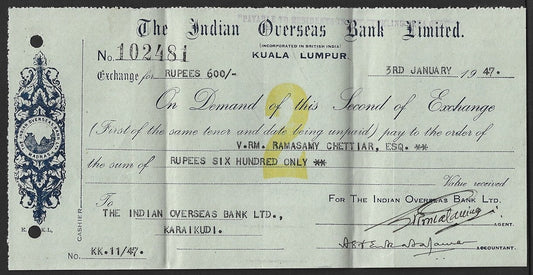 The Indian Overseas Bank Limited.
(INCORPORATED IN BRITISH INDIA)
KUALA LUMPUR.
No. 102481
3RD JANUARY 1947.
Exchange for RUPEES 600/-
2
On Demand of this Second of Exchange
(First of the same tenor and date being unpaid) pay to the order of
V.RM. RAMASAMY CHETTIAR, ESQ. **
the sum of RUPEES SIX HUNDRED ONLY **
Value received
To
For THE INDIAN OVERSEAS BANK LTD.
THE INDIAN OVERSEAS BANK LTD.,
KARAIKUDI.
AGENT.
ACCOUNTANT.
CASHIER
No. KK.11/47.